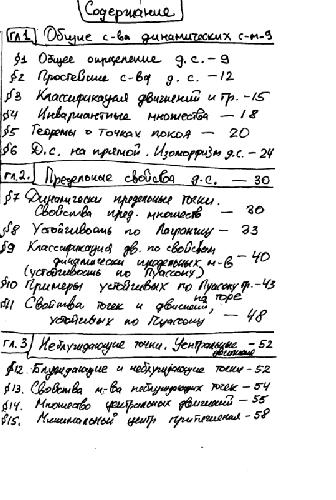 Содержание
Гл.1 Общие с-ва динамических с-м-9
§1 Общее определение д.с.-9
§2 Простейшие с-ва д.с.-12
§3 Классификация движений и тр.-15
§4 Инвариантные множества -18
§5 Теоремы о точках покоя - 20
§6 Д.с. на прямой. Изоморфизм д.с.-24
Гл.2. Предельные свойства д.с. - 30
§7 Динамически предельные точки.
Свойства пред. множеств - 30
§8 Устойчивость по Лагранжу - 33
§9 Классификация дв. по свойствам
динамически предельных м-в -40
(устойчивость по Пуассону)
§10 Примеры устойчивых по Пуассону тр.-43
на торе
§11 Свойства точек и движений,
устойчивых по Пуассону - 48
Гл.3 Неблуждающие точки. Центральные -52
движения
§12. Блуждающие и неблуждающие точки -52
§13. Свойства м-ва неблуждающих точек -54
§14. Множество центральных движений -55
§15. Минимальный центр притяжения -58